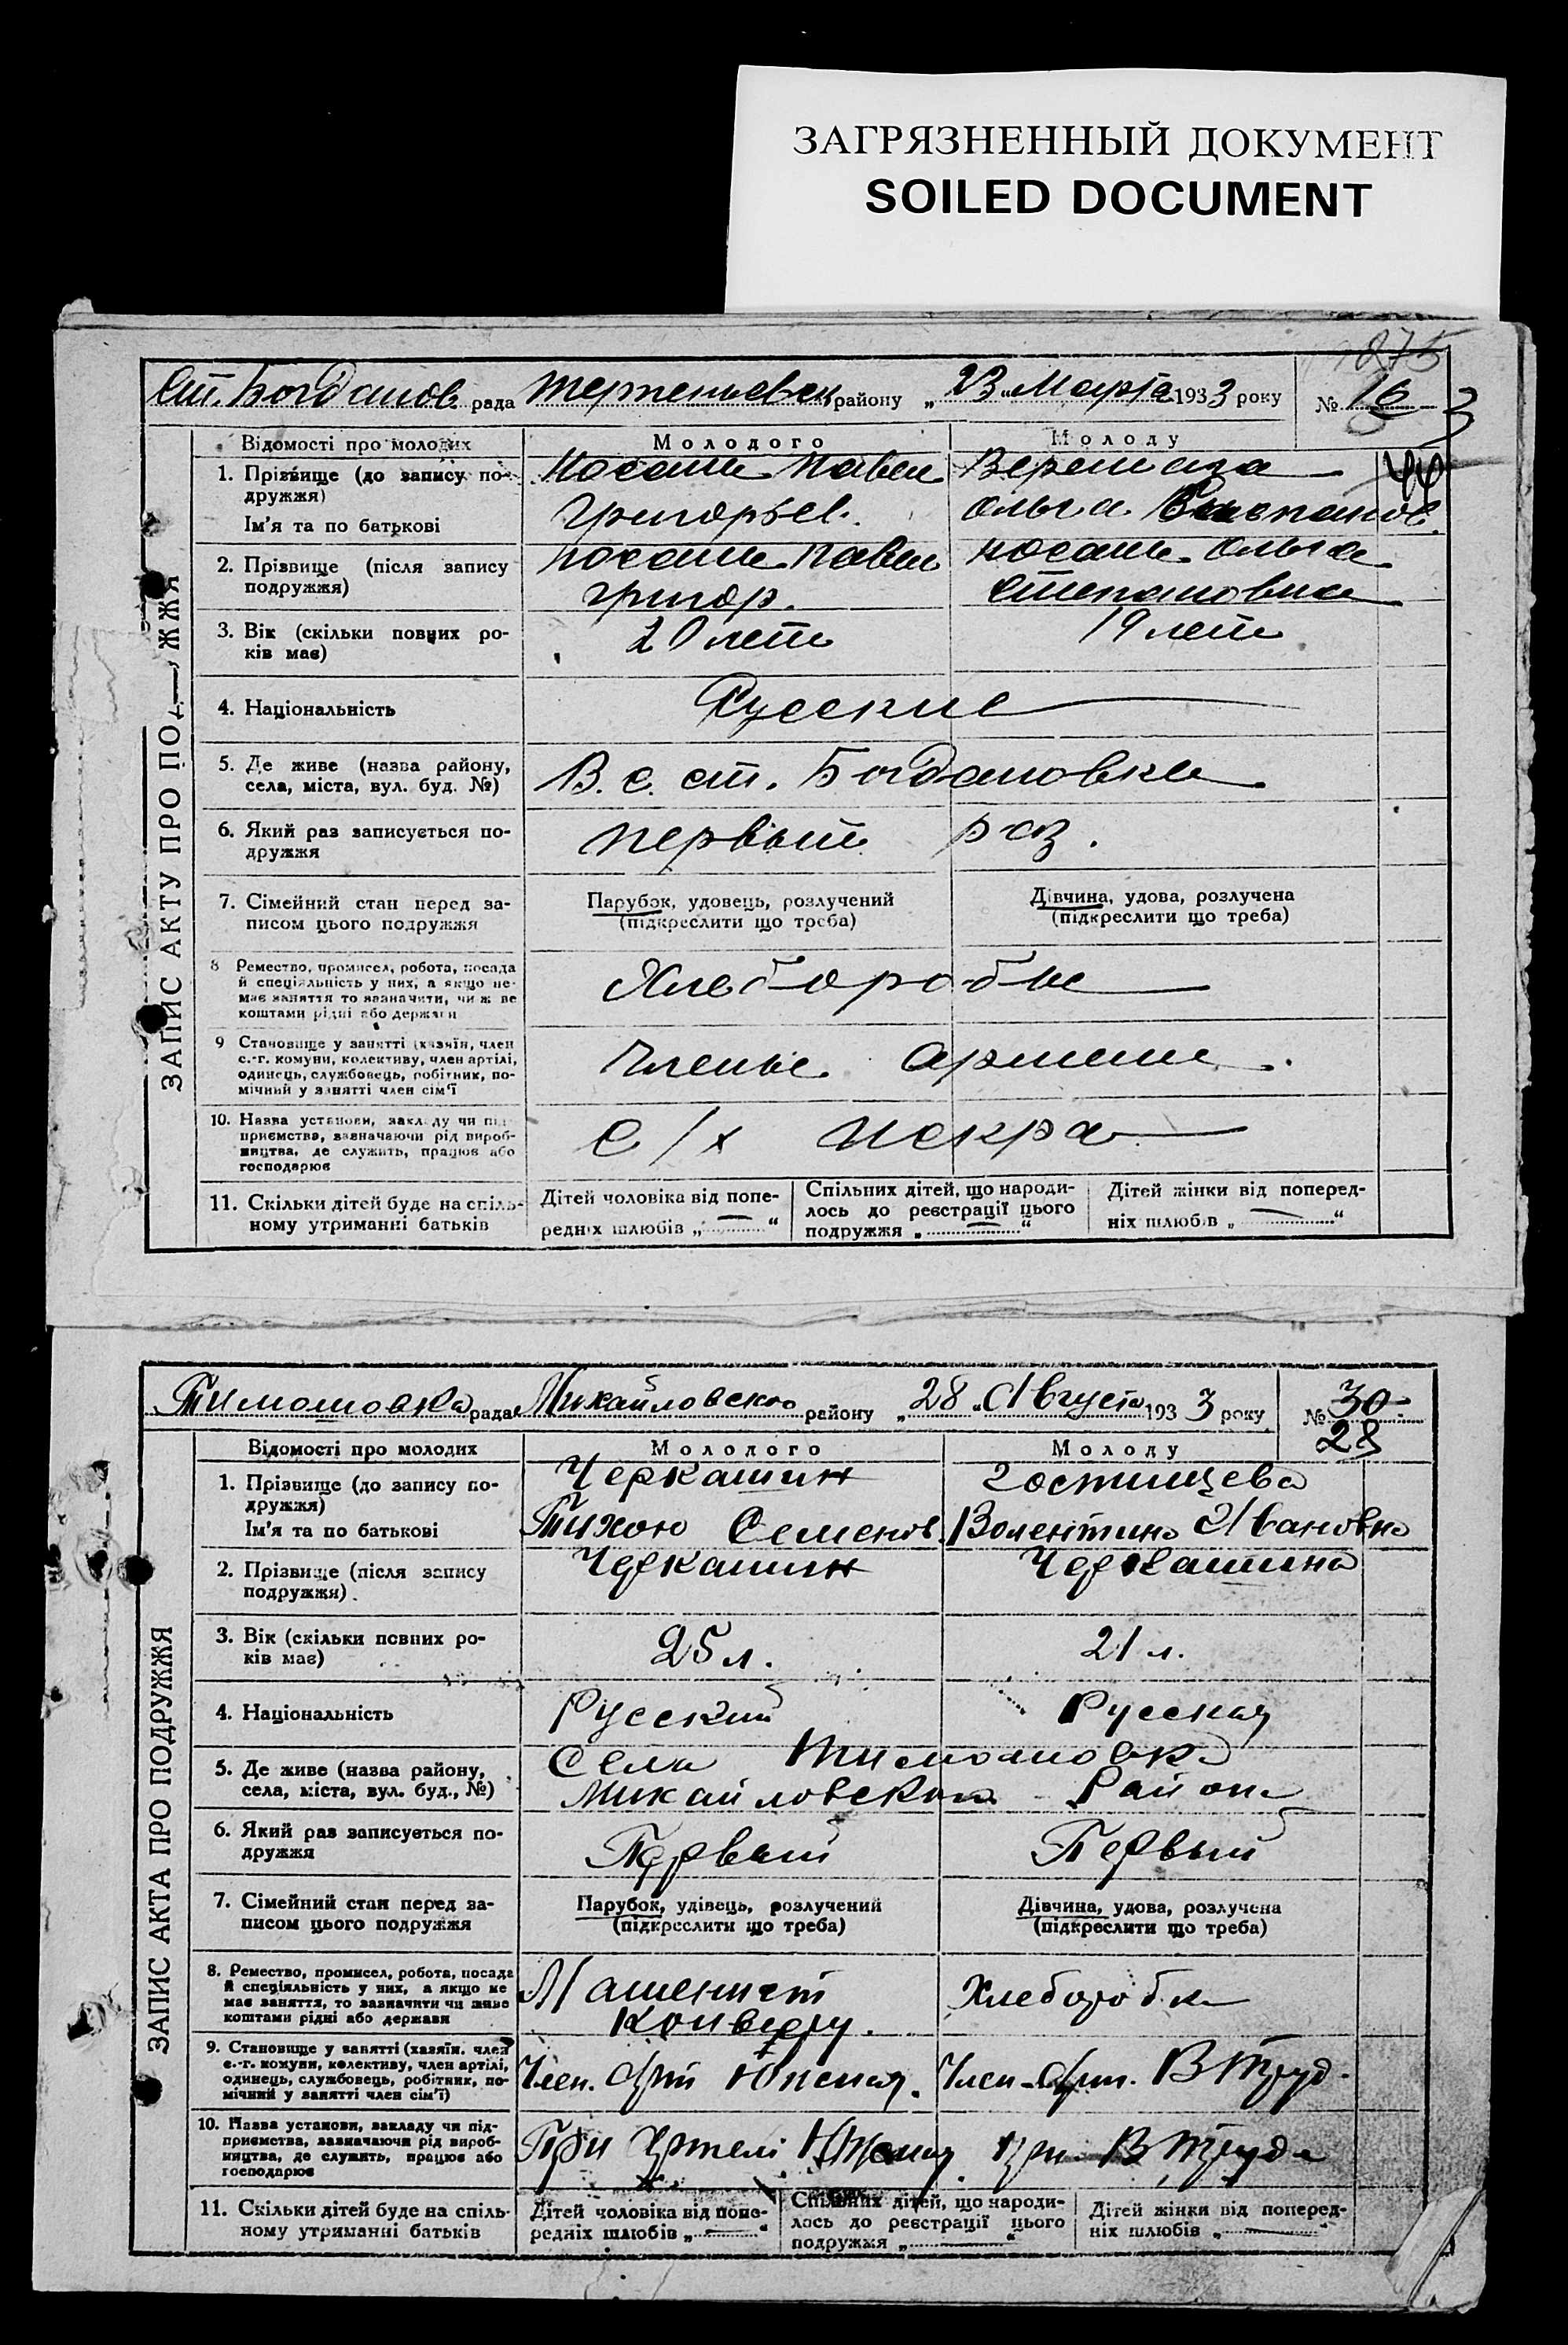 ЗАГРЯЗНЕННЫЙ ДОКУМЕНТ
SOILED DOCUMENT
1075
Ст. Богданов рада района „23„ Марта 1933 року № 16
3
44
ЗАПИС АКТУ ПРО ПОД ЖЖЯ
Відомості про молодих Молодого Молоду
1. Прізвище (до запису по-
дружжя)
Ім'я та по батькові
Носаль Павел
Григорьев.
Ольга Степанов.
2. Прізвище (після запису
подружжя)
Носаль Павел
Григор.
Носаль Ольга
Степановна
3. Вік (скільки повних ро-
ків має)
20 лет 19 лет
4. Національність Русские
5. Де живе (назва району,
села, міста, вул. буд. №)
В. с. ст. Богдановка
6. Який раз записується по-
дружжя
первый раз.
7. Сімейний стан перед за-
писом цього подружжя
Парубок, удовець, розлучений
(підкреслити що треба)
Дівчина, удова, розлучена
(підкреслити що треба)
8 Ремество, промисел, робота, посада
й спеціяльність у них, а якщо не-
має заняття то зазначити, чи ж ве
коштами рідні або держави
Хлеборобы
9 Становище у занятті (хазяїн, член
с.-г. комуни, колективу, член артілі,
одинець, службовець, робітник, по-
мічний у занятті член сім'ї
Члены артели.
10. Назва установи, закладу чи під
приємства, зазначаючи рід вироб-
ництва, де служить, працює або
господарює
С/х Искра
11. Скільки дітей буде на спіль-
ному утриманні батьків
Дітей чоловіка від попе-
редніх шлюбів „ — “
Спільних дітей, що народи-
лось до реєстрації цього
подружжя „ — “
Дітей жінки від поперед-
ніх шлюбів „ — “
Тимошовка рада Михайловского району „28„ Августа 1933 року № 30
28
ЗАПИС АКТА ПРО ПОДРУЖЖЯ
Відомості про молодих Молодого Молоду
1. Прізвище (до запису по-
дружжя)
Ім'я та по батькові
Черкашин
Тихон Семенов.
Гостищева
Волентина Ивановна
2. Прізвище (після запису
подружжя).
Черкашин Черкашина
3. Вік (скільки повних ро-
ків має)
25 л. 21 л.
4. Національність Русский Русская
5. Де живе (назва району,
села, міста, вул. буд., №)
Села Тимошовка
Михайловского Района
6. Який раз записується по-
дружжя
Первый Первый
7. Сімейний стан перед за-
писом цього подружжя
Парубок, удівець, розлучений
(підкреслити що треба)
Дівчина, удова, розлучена
(підкреслити що треба)
8. Ремество, промисел, робота, посада
й спеціяльність у них, а якщо не
має заняття, то зазначити чи живе
коштами рідні або держави
Хлеборобка
9. Становище у занятті (хазяїн. член
с.-г. комуни, колективу, член артілі,
одинець, службовець, робітник, по-
мічний у занятті член сім'ї)
Член. Арт Член. Арт. В Труд.
10. Назва установи, закладу чи під-
приємства, зазначаючи рід вироб-
ництва, де служить, працює або
господарює
При Артели при В Труде
11. Скільки дітей буде на спіль-
ному утриманні батьків
Дітей чоловіка від попе-
редніх шлюбів „ — “
Спільних дітей, що народи-
лось до реєстрації цього
подружжя „ — “
Дітей жінки від поперед-
ніх шлюбів „ — “